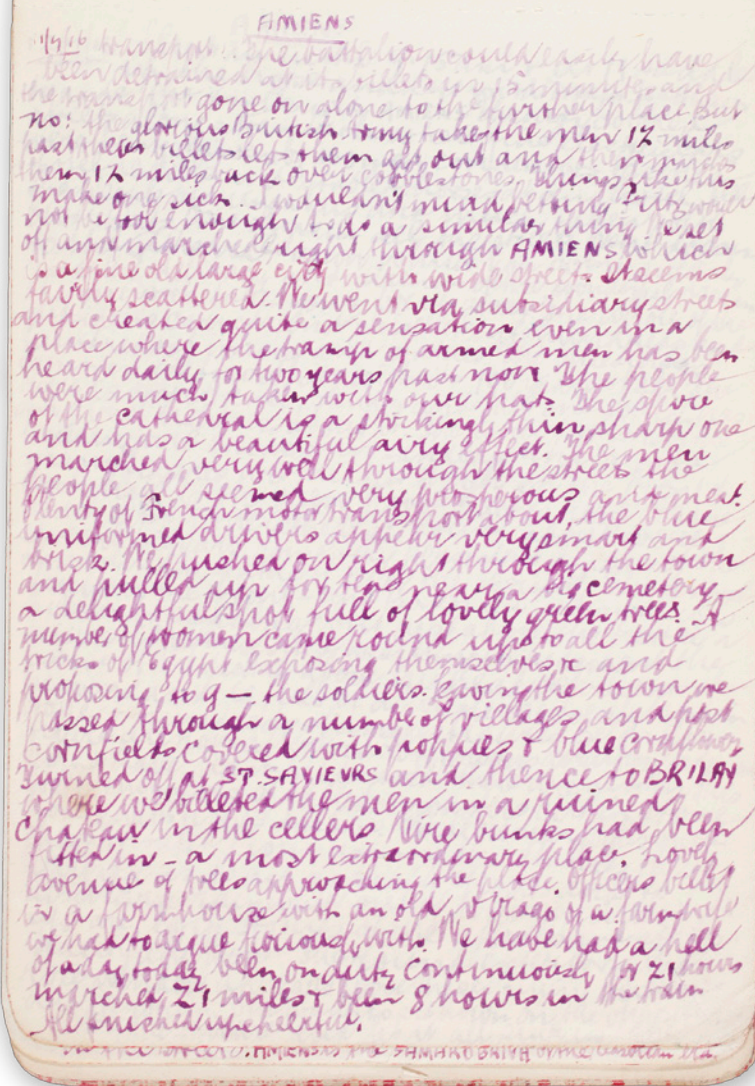 AMIENS
1/7/16 transport. The battalion could easily have
been detrained at its billets in 15 minutes and
the transport gone on alone to the further place. But
no! the glorious British Army takes the men 12 miles
past their billets lets them get out and then marches
them 12 miles back over cobblestones. Things like this
make one sick. I wouldn't mind betting Fritz would
not be fool enough to do a similar thing. We set
off and marched right through AMIENS which
is a fine old large city with wide streets. It seems
fairly scattered. We went via subsidiary streets
and created quite a sensation even in a
place where the tramp of armed men has been
heard daily for two years past now. The people
were much taken with our hats. The spire
of the cathedral is a striking thin sharp one
and has a beautiful airy effect. The men
marched very well through the streets the
people all seemed very prosperous and neat.
Plenty of French motor transport about, the blue
uniformed drivers appear very smart and
brisk. We pushed on right through the town
and pulled up for tea near a big cemetery
a delightful spot full of lovely green trees. A
number of women came round up to all the
tricks of Egypt exposing themselves & and
proposing to g— the soldiers. Leaving the town we
passed through a number of villages and past
cornfields covered with poppies & blue cornflowers
Turned off at ST. SAVIEURS and thence to BRILAY
where we billeted the men in a ruined
chateau in the cellers. Wire bunks had been
fitted in - a most extraordinary place. Lovely
avenue of trees approaching the place. Officers billet
in a farmhouse with an old virago of a farmwife
we had to argue ferociously with. We have had a hell
of a day today been on duty continuously for 21 hours
marched 21 miles & been 8 hours in the train
All finished up cheerful.
AMIENS is the SAMAROBRIVA of the